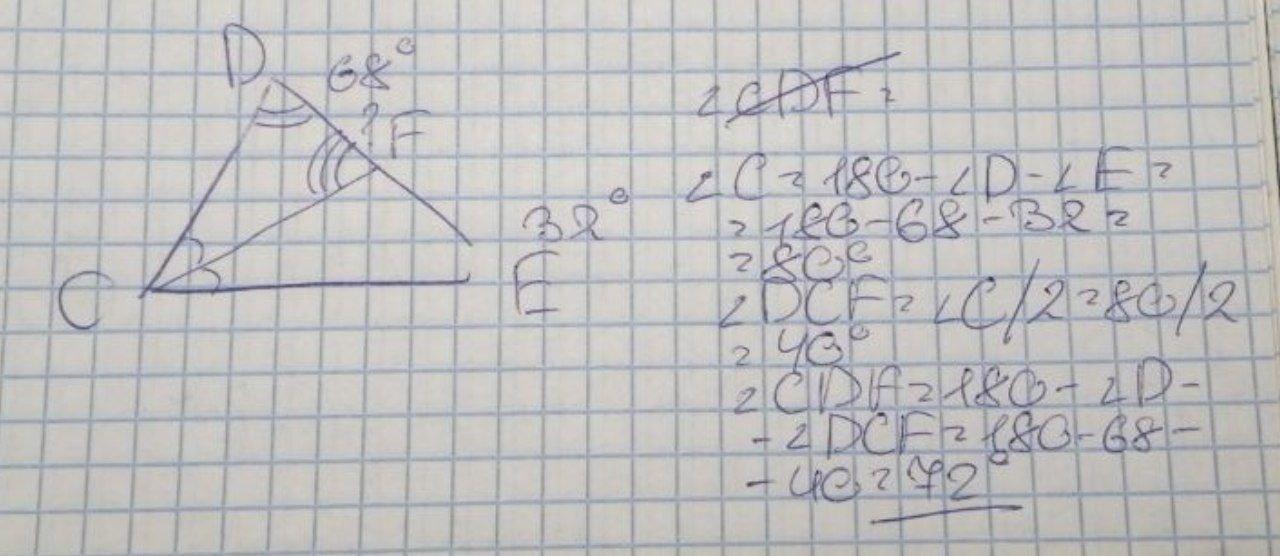 D 68°
? F
32°
C E
∠CDF =
∠C = 180 - ∠D - ∠E =
= 180 - 68 - 32 =
= 80°
∠DCF = ∠C/2 = 80/2
= 40°
∠CDF = 180 - ∠D -
- ∠DCF = 180 - 68 -
- 40 = 72°